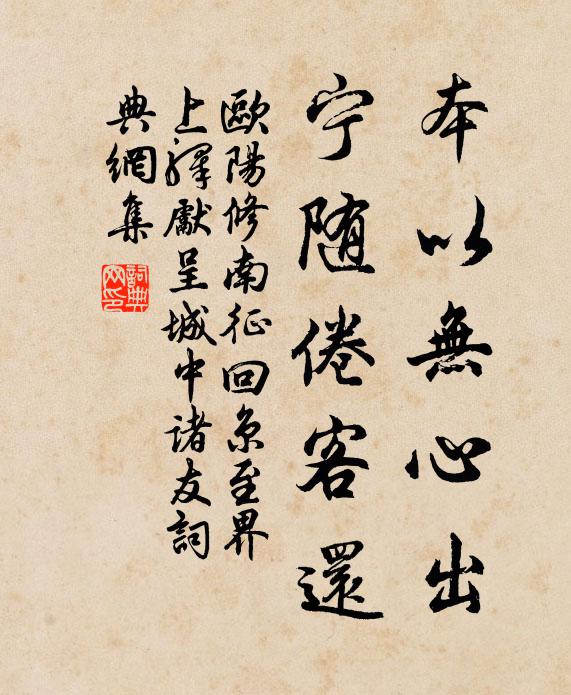 本以無心出
宁随倦客還
歐陽修南征回京至界
上驛獻呈城中諸友詞
典網集
詞典網印